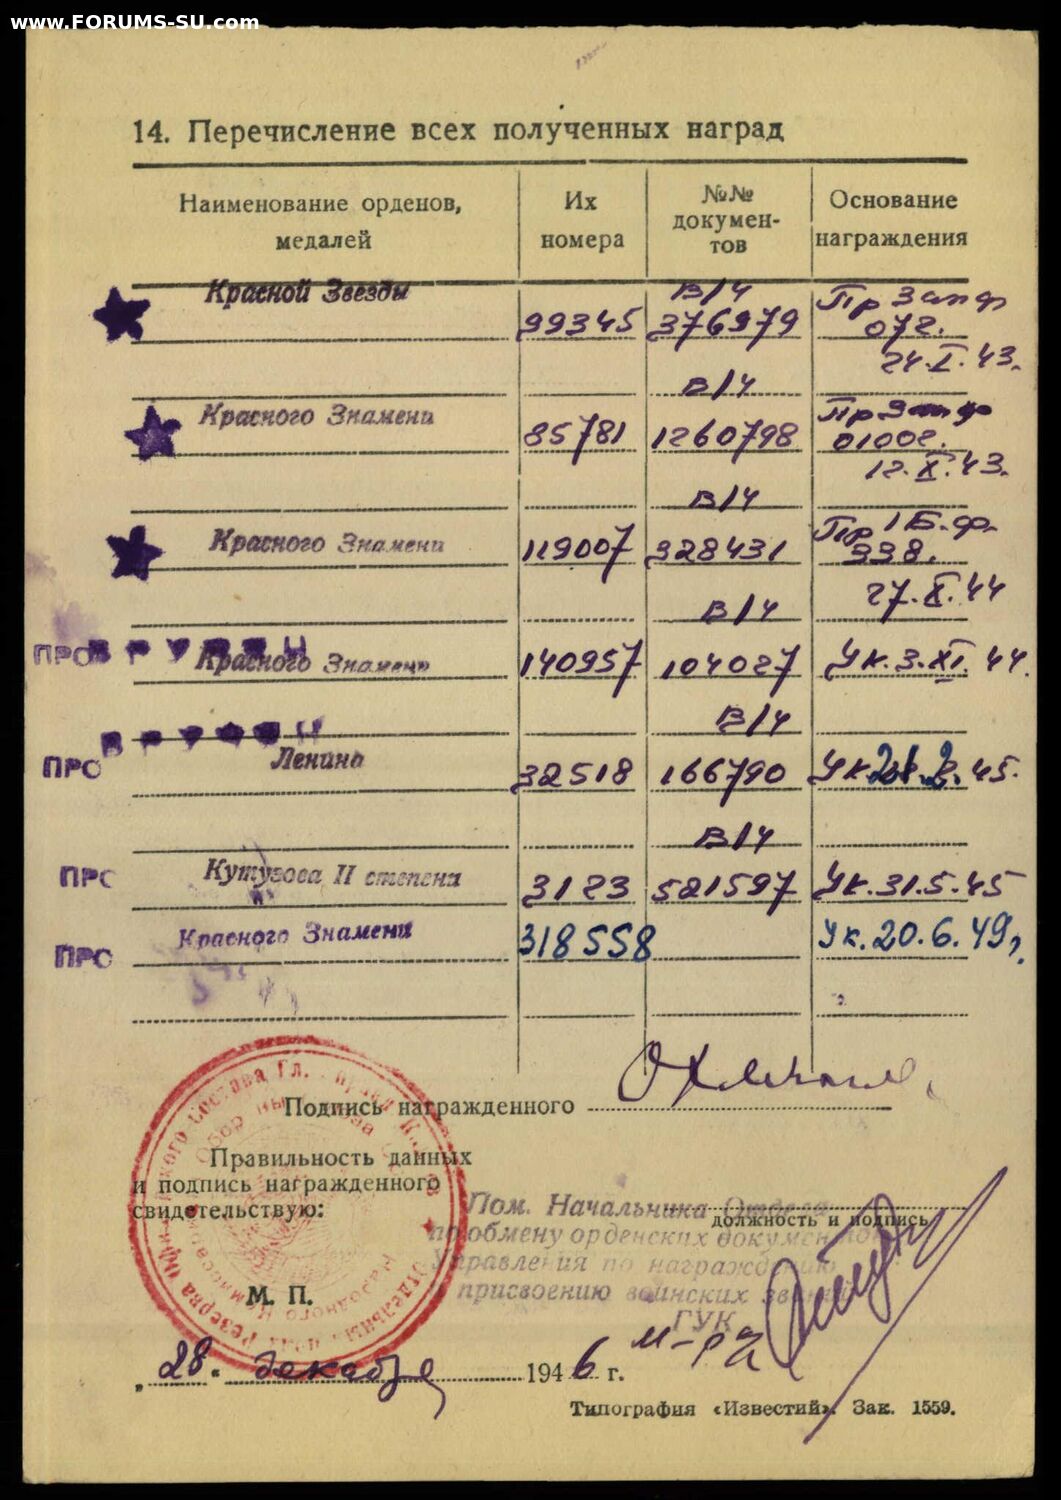 www.FORUMS-SU.com
14. Перечисление всех полученных наград
Наименование орденов, медалей
Их номера
№№ докумен-тов
Основание награждения
Красной Звезды 99345 В/ч 376979 Пр Зап ф 072. 24.I.43.
Красного Знамени 85781 В/ч 1260798 Пр Зап ф 01002. 12.X.43.
Красного Знамени 119007 В/ч 328431 Пр 1 Б.ф. 338. 27.X.44
ПРО ВРУЧЕН Красного Знамени 140957 В/ч 104027 Ук.3.XI.44.
ПРО ВРУЧЕН Ленина 32518 В/ч 166790 Ук.21.2.45.
ПРО Кутузова II степени 3123 В/ч 521597 Ук.31.5.45
ПРО Красного Знамени 318558 Ук.20.6.49г.
Подпись награжденного
Правильность данных
и подпись награжденного
свидетельствую:
Пом. Начальника Отдела
должность и подпись
по обмену орденских документов
Управления по награждению
присвоению воинских званий
ГУК
М. П.
м-р а/с
„28“ декабря 1946 г.
Типография «Известий». Зак. 1559.